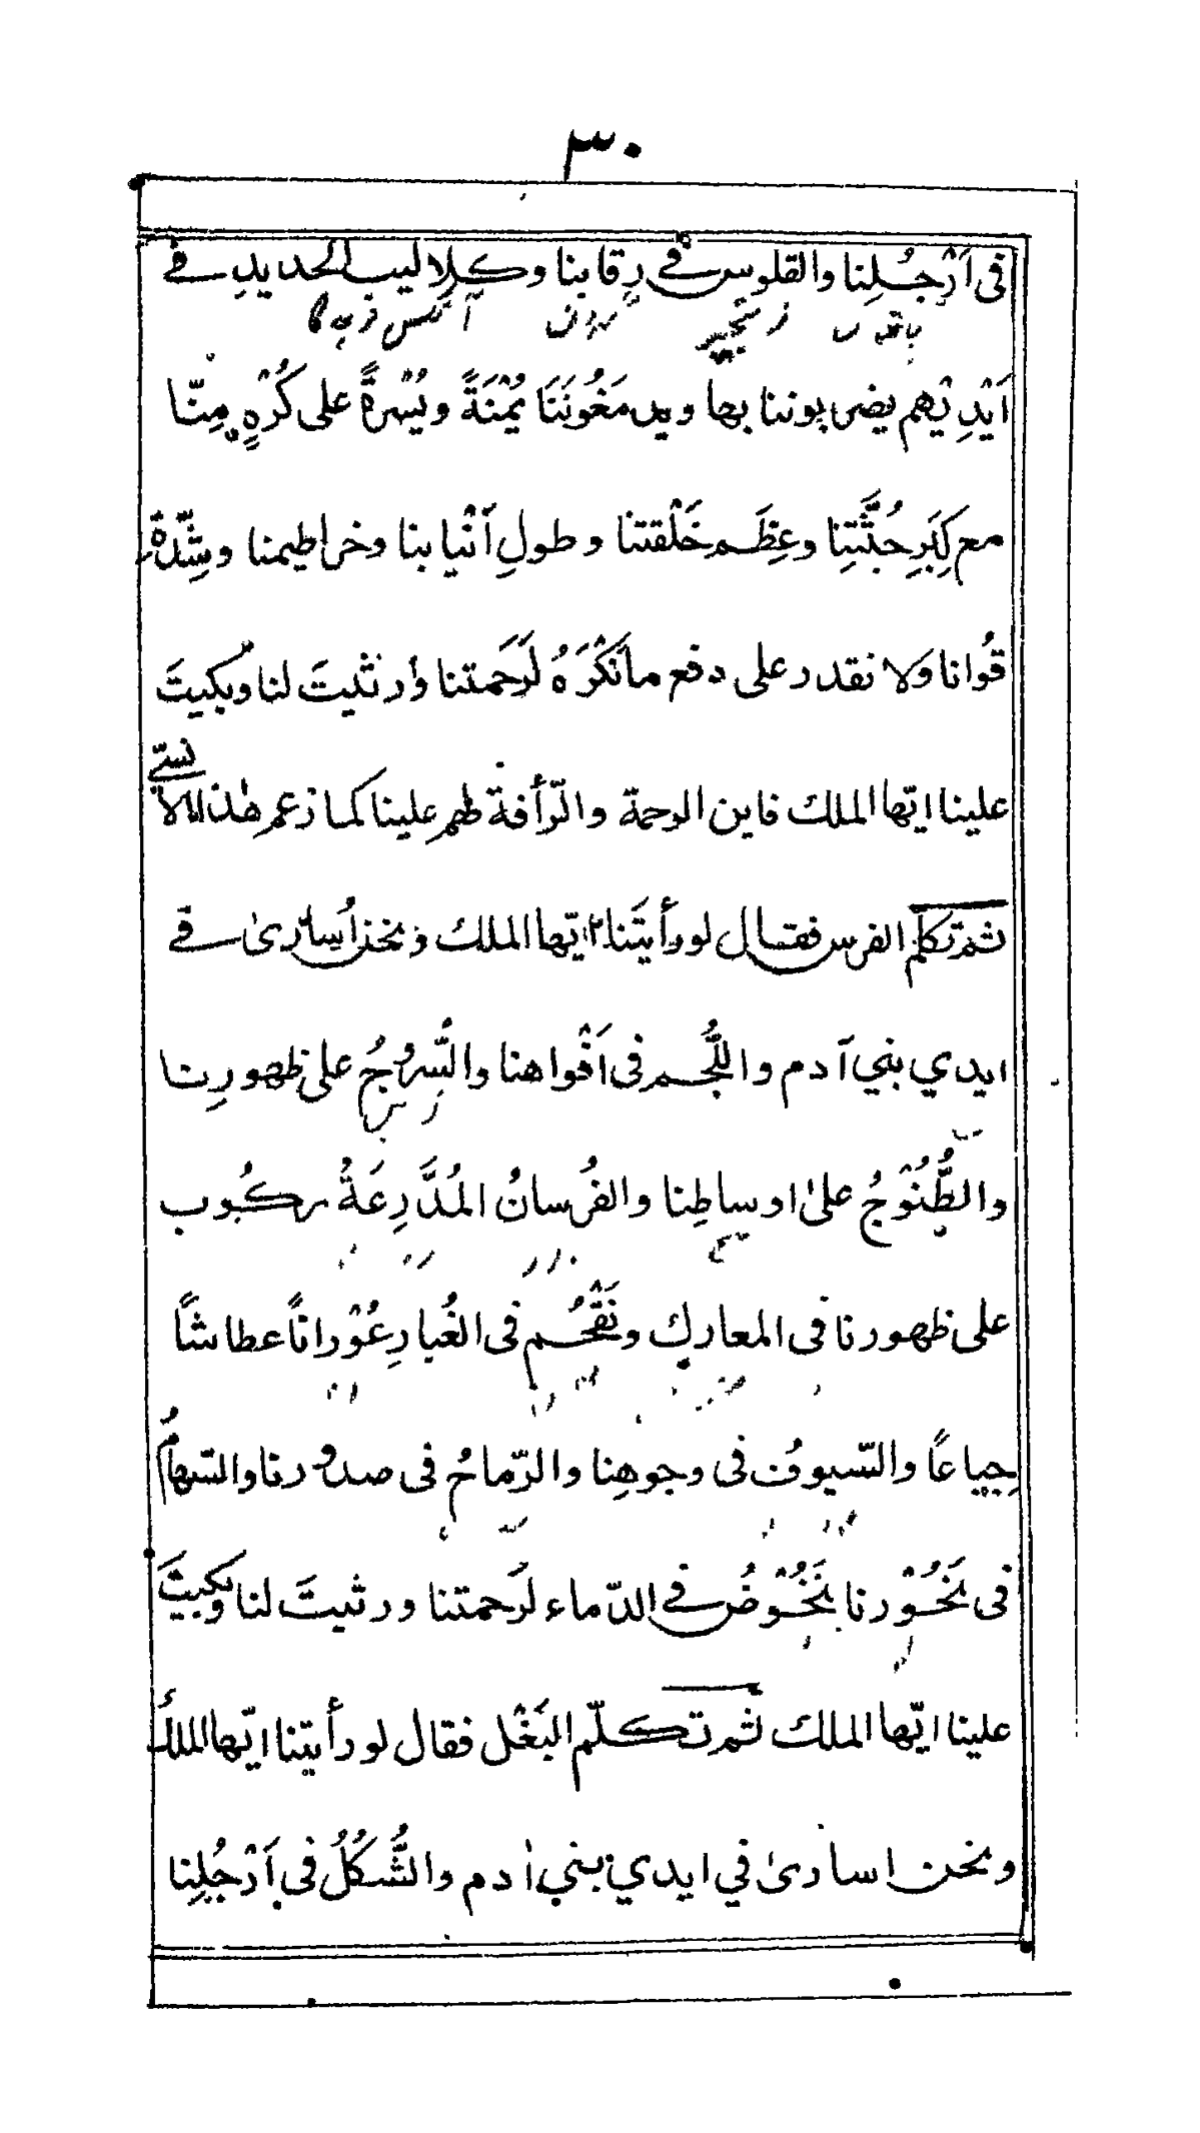 ٣٠
فى اَرْجُلِنا والقلوس فى رِقابنا وكلاليب الحديدِ فى
اَيْدِيْهم يضربوننا بها ويدمَغُونَنَا يُمْنَةً ويُسْرةً على كُرْهٍ مِنّا
مع كِبَرِ جُثَّتِنا وعِظَم خَلْقتنا وطولِ اَنْيابنا وخراطيمنا وشِدّة
قُوانا ولا نقدر على دفع ما نَكْرَهُ لَرَحمتنا وأرثيتَ لنا وبكيتَ
علينا ايّها الملك فاين الرحمة والرّأفة لهم علينا كما زعم هٰذا الانسىّ
ثم تكلّم الفرس فقال لو رأيتَنا ايّها الملك ونحن اُسارىٰ فى
ايدي بني آدم واللُّجُم فى اَفْواهنا والسُّرُوْجُ على ظهورِنا
والطُّنُوْجُ علىٰ اوساطِنا والفُرسانُ المُدَّرِعَةُ ركُوب
على ظهورنا فى المعارك ونَقْحُم فى الغُبارِ عُوْرانًا عطاشًا
جِياعًا والسّيوفُ فى وجوهِنا والرّماحُ فى صدورنا والسّهامُ
فى نَحُوْرنا نَخُوْضُ فى الدّماء لَرَحمتنا ورثيتَ لنا وبكيتَ
علينا ايّها الملك ثم تكلّم البَغْل فقال لو رأيتنا ايّها الملكُ
ونحن اسارىٰ في ايدي بني اٰدم والشُّكُلُ فى اَرْجُلِنا